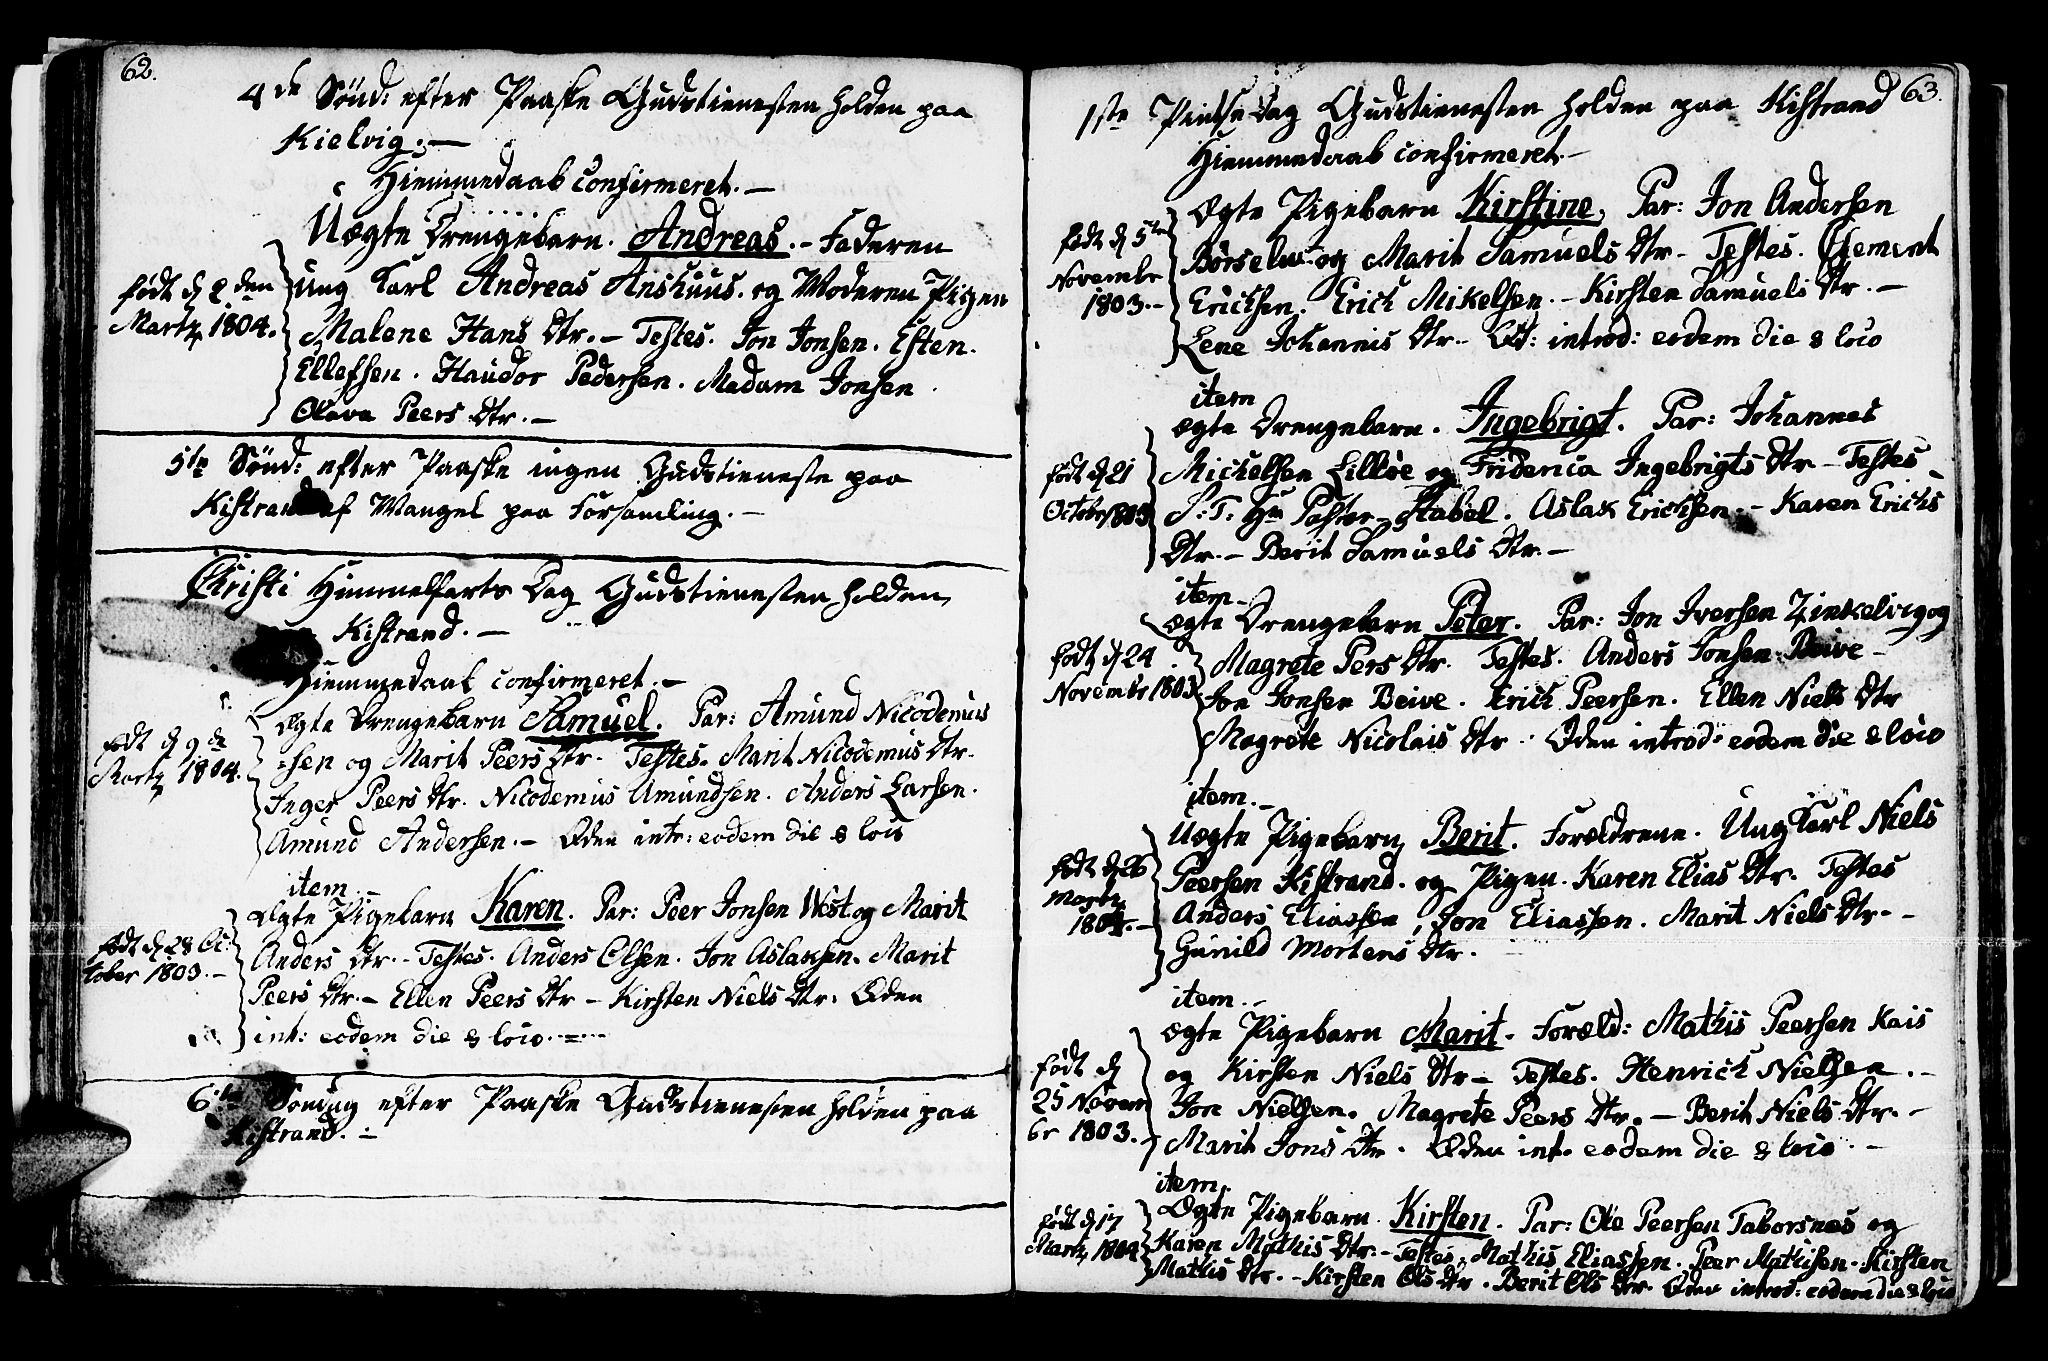 62.
4de Sönd: efter Paaske Gudstienesten holden paa
Kielvig. —
Hiemmedaab confirmeret. —
Uægte Drengebarn. Andreas. - Faderen
født d 2den
Martz 1804.
Ung Karl Andreas Anshuus. og Moderen Pigen
Malene Hans Dtr. — Testes. Jon Jonsen. Esten.
Ellefsen. Haudor Pedersen. Madam Jonsen.
Olava Peers Dtr. —
5te Sönd: efter Paaske ingen Gudstieneste paa
Kistrand af Mangel paa Forsamling. —
Christi Himmelfarts Dag Gudstienesten holden
Kistrand. —
Hiemmedaab confirmeret. —
født d 9de
Martz 1804.
Ægte Drengebarn Samuel. Par: Amund Nicodemus
-sen og Marit Peers Dtr. Testes. Marit Nicodemus Dtr.
Inger Peers Dtr. Nicodemus Amundsen. Anders Larsen.
Amund Andersen. — Eden intr: eodem die & loco
item. —
født d 28 Oc-
tober 1803. —
Ægte Pigebarn Karen. Par: Peer Jonsen West og Marit
Anders Dtr. - Testes. Anders Olsen. Jon Aslaksen. Marit
Peers Dtr. — Ellen Peers Dtr — Kirsten Niels Dtr. Eden
int: eodem die & loco. —
6te Söndag efter Paaske Gudstienesten holden paa
Kistrand. —
63.
1ste Pintse Dag Gudstienesten holden paa Kistrand
Hiemmedaab confirmeret. —
født d 5te
Novembr
1803. -
Ægte Pigebarn Kirstine. Par: Jon Andersen
Börselw. og Marit Samuels Dtr - Testes. Clement
Erichsen. Erich Mikelsen. - Kirsten Samuels Dtr. —
Lene Johannis Dtr. introd: eodem die & loco
item
født d 21
October 1803
ægte Drengebarn. Ingebrigt. Par: Johannes
Michelsen Lilløe og Friderica Ingebrigts Dtr - Testes
S: T: Hr Pastor Stabel. Aslak Erichsen. - Karen Erichs
Dtr. — Berit Samuels Dtr. —
item —
født d 24
Novembr 1803
ægte Drengebarn Peter. Par: Jon Iversen Zinkelvig og
Magrete Pers Dtr. Testes. Anders Jonsen Beive -
Jon Jonsen Beive. Erich Peersen. Ellen Niels Dtr
Magrete Nicolais Dtr. Eden introd: eodem die & loco
item. —
født d 26
Martz
1804. —
Uægte Pigebarn Berit. Forældrene. Ung Karl Niels
Peersen Kistrand. og Pigen. Karen Elias Dtr. Testes
Anders Eliassen, Jon Eliassen. Marit Niels Dtr. -
Gunild Mortens Dtr.
item. -
født d
25 Novem
br 1803. -
ægte Pigebarn Marit. Foræld: Mathis Peersen Kais
og Kirsten Niels Dtr - Testes. Henrich Nielsen. -
Jon Nielsen. Magrete Peers Dtr. — Berit Niels Dtr. -
Marit Jons Dtr. Eden int. eodem die & loco. —
item.
født d 17
Martz 1804
Ægte Pigebarn Kirsten. Par: Ole Peersen Taborsnes og
Karen Mathis Dtr. - Testes. Mathis Eliassen. Peer Mathisen. Kirsten
Mathis Dtr. - Kirsten Ols Dtr. Berit Ols Dtr. Eden introd: eodem die & loco